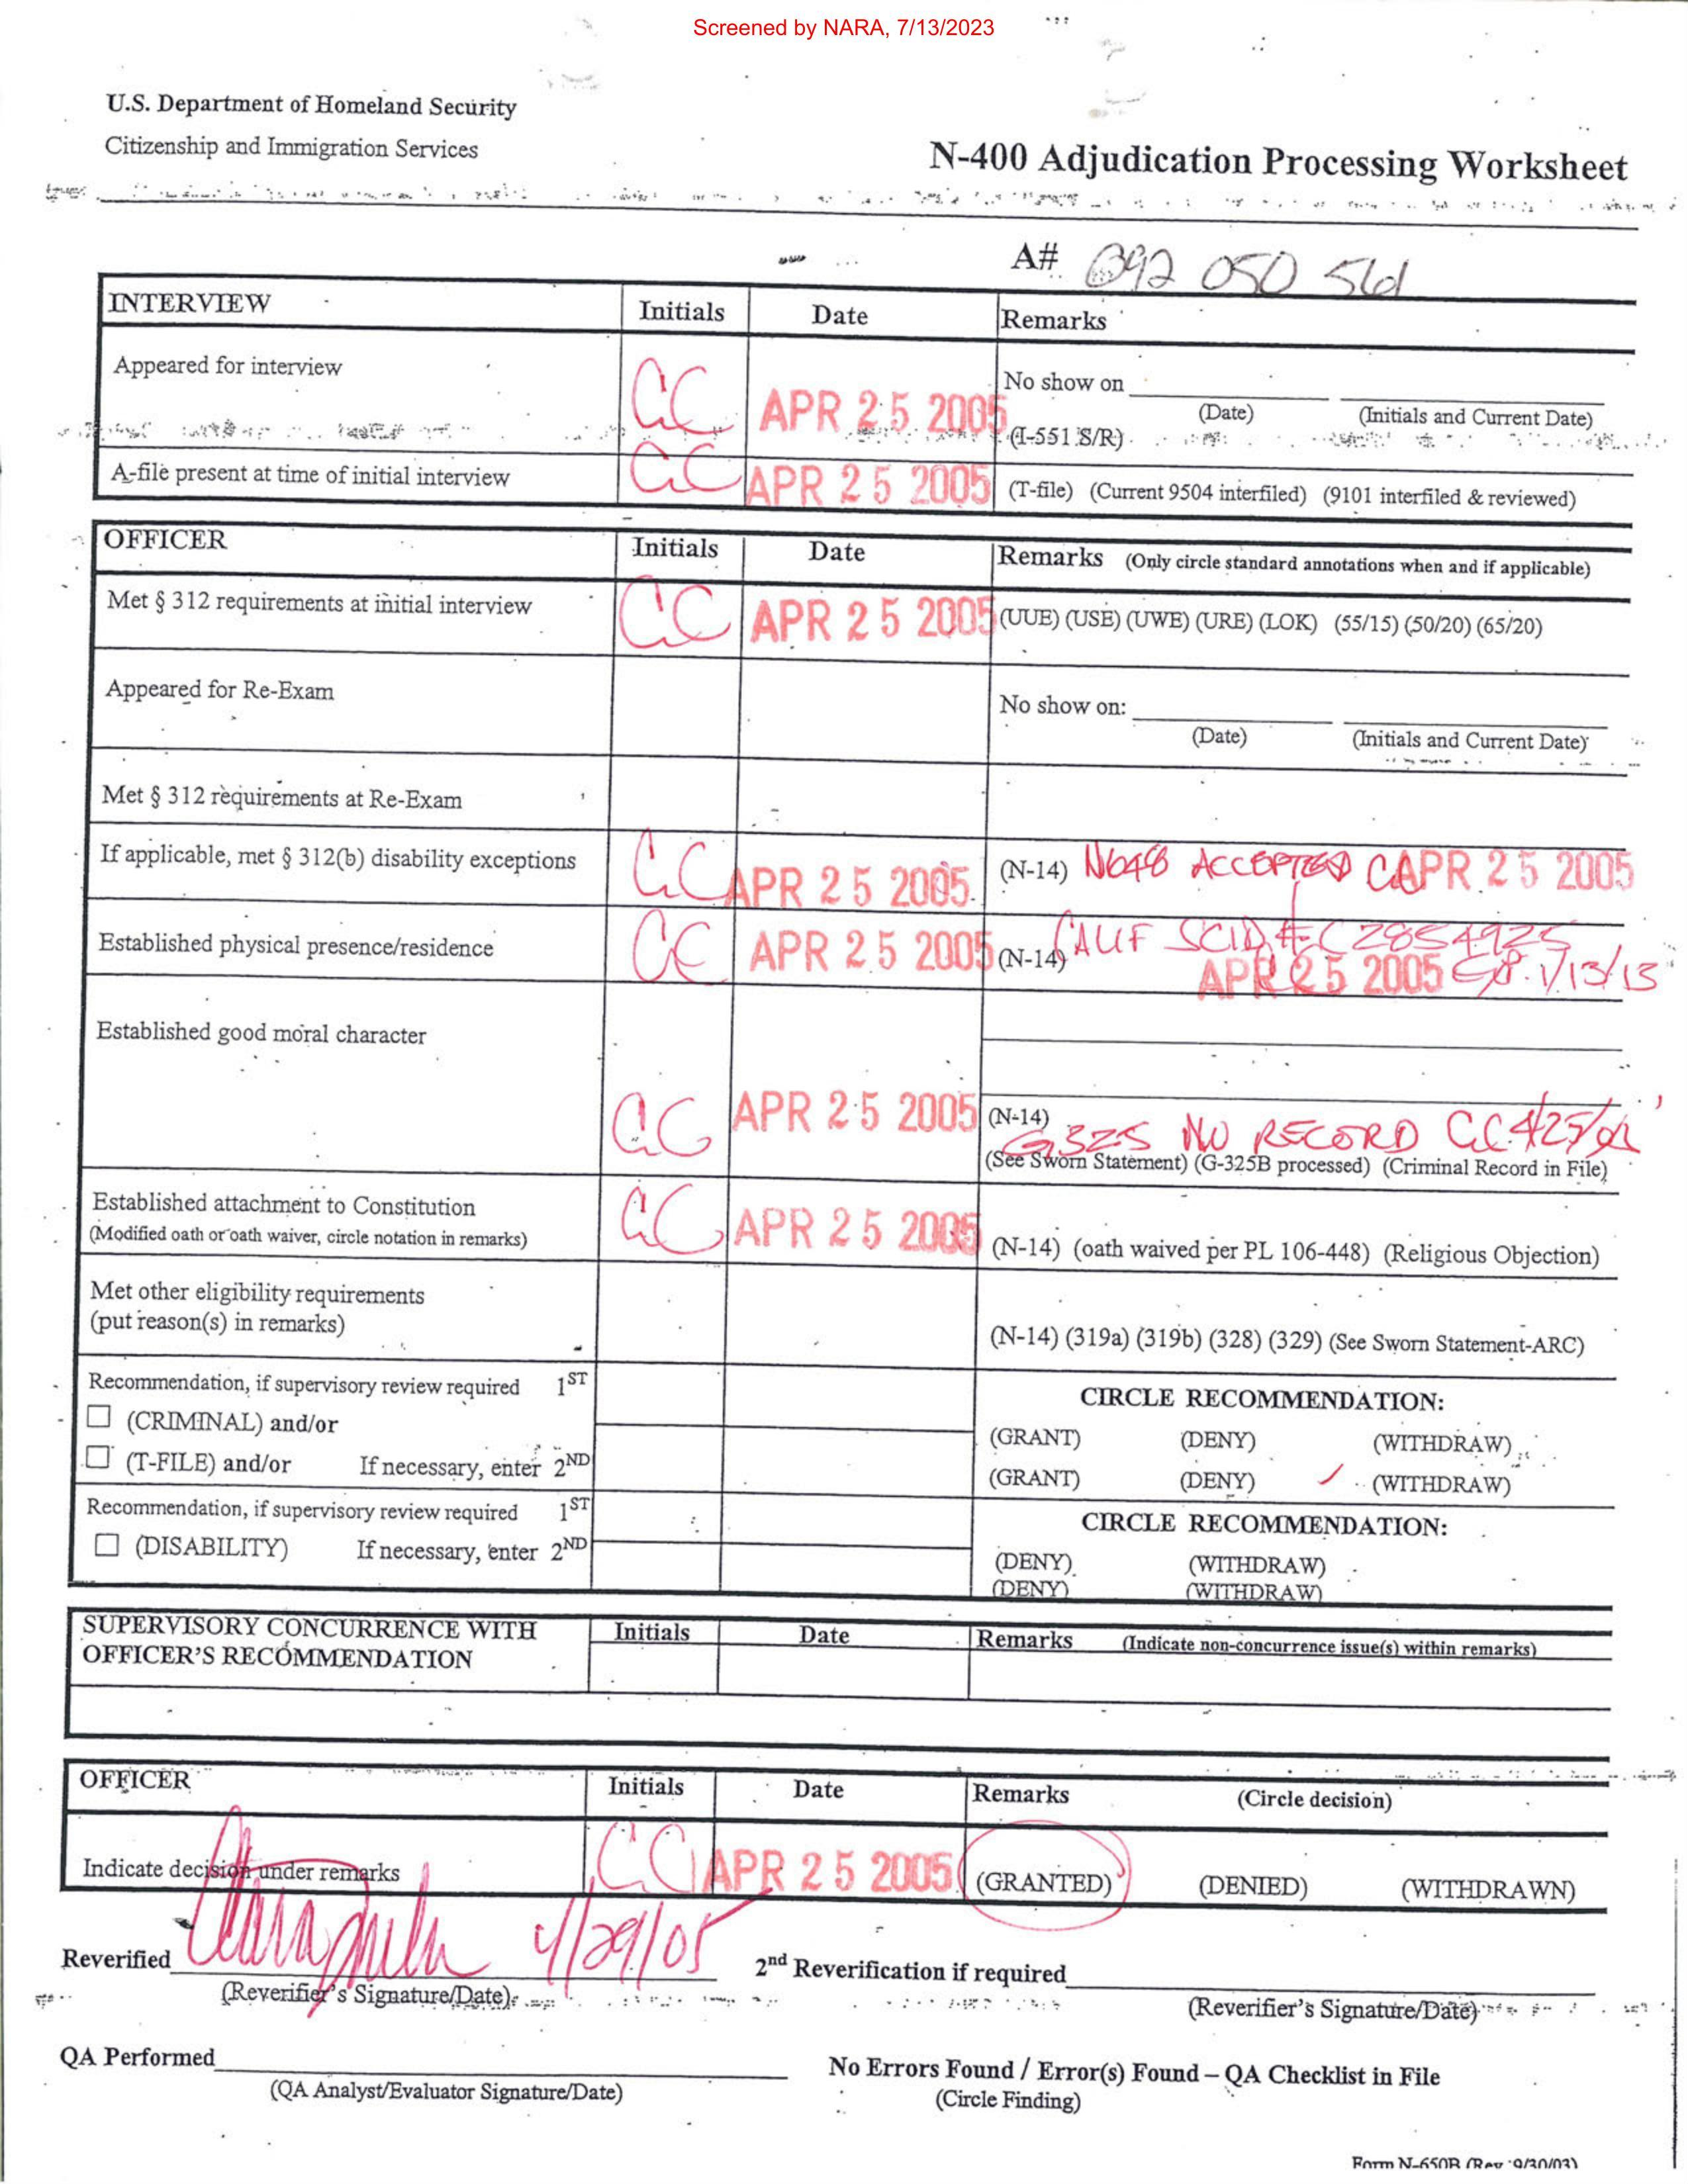 Screened by NARA, 7/13/2023
U.S. Department of Homeland Security
Citizenship and Immigration Services
N-400 Adjudication Processing Worksheet
A# 092 050 561
INTERVIEW Initials Date Remarks
Appeared for interview CC APR 25 2005 No show on
(Date) (Initials and Current Date)
(I-551 S/R)
A-file present at time of initial interview CC APR 25 2005 (T-file) (Current 9504 interfiled) (9101 interfiled & reviewed)
OFFICER Initials Date Remarks (Only circle standard annotations when and if applicable)
Met § 312 requirements at initial interview CC APR 25 2005 (UUE) (USE) (UWE) (URE) (LOK) (55/15) (50/20) (65/20)
Appeared for Re-Exam No show on:
(Date) (Initials and Current Date)
Met § 312 requirements at Re-Exam
If applicable, met § 312(b) disability exceptions CC APR 25 2005 (N-14) N648 ACCEPTED CC APR 25 2005
Established physical presence/residence CC APR 25 2005 (N-14) CALIF SCID # C2854925
APR 25 2005 Exp. 1/13/13
Established good moral character
CC APR 25 2005 (N-14) G325 NO RECORD CC 4/25/
(See Sworn Statement) (G-325B processed) (Criminal Record in File)
Established attachment to Constitution CC APR 25 2005
(Modified oath or oath waiver, circle notation in remarks) (N-14) (oath waived per PL 106-448) (Religious Objection)
Met other eligibility requirements
(put reason(s) in remarks) (N-14) (319a) (319b) (328) (329) (See Sworn Statement-ARC)
Recommendation, if supervisory review required 1ST CIRCLE RECOMMENDATION:
(CRIMINAL) and/or (GRANT) (DENY) (WITHDRAW)
(T-FILE) and/or If necessary, enter 2ND (GRANT) (DENY) (WITHDRAW)
Recommendation, if supervisory review required 1ST CIRCLE RECOMMENDATION:
(DISABILITY) If necessary, enter 2ND (DENY) (WITHDRAW)
(DENY) (WITHDRAW)
SUPERVISORY CONCURRENCE WITH Initials Date Remarks (Indicate non-concurrence issue(s) within remarks)
OFFICER'S RECOMMENDATION
OFFICER Initials Date Remarks (Circle decision)
Indicate decision under remarks CC APR 25 2005 (GRANTED) (DENIED) (WITHDRAWN)
Reverified 4/29/05 2nd Reverification if required
(Reverifier's Signature/Date) (Reverifier's Signature/Date)
QA Performed No Errors Found / Error(s) Found – QA Checklist in File
(QA Analyst/Evaluator Signature/Date) (Circle Finding)
Form N-650B (Rev 9/30/03)